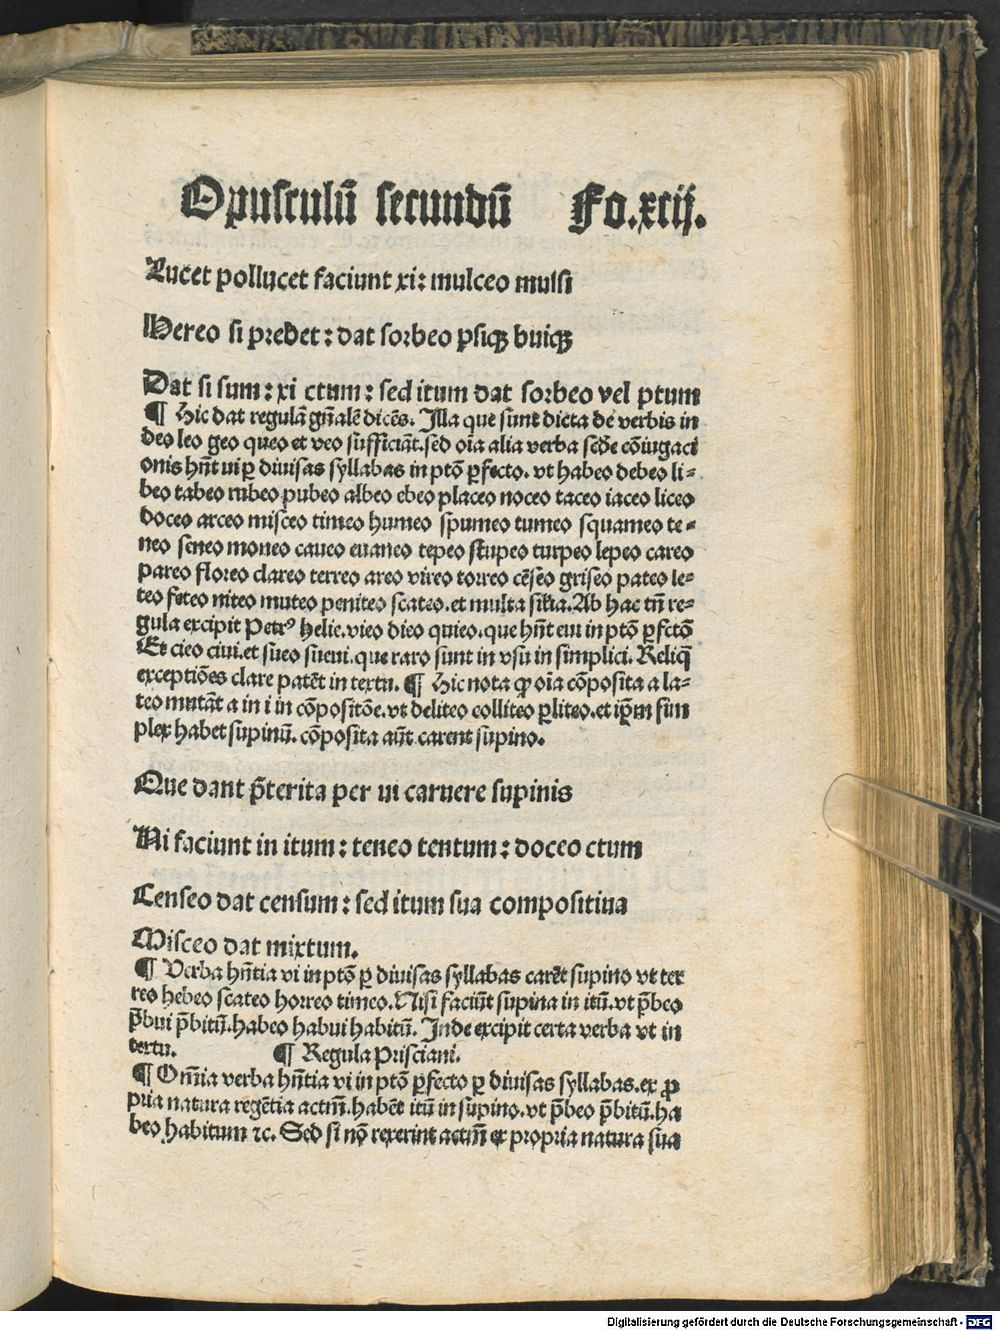 Opusculū secundū Fo.xcij.
Lucet pollucet faciunt xi: mulceo mulsi
Hereo si predet: dat sorbeo psiqꝫ buiqꝫ
Dat si sum: xi ctum: sed itum dat sorbeo vel ptum
¶ Hic dat regulā gñalē dicēs. Illa que sunt dicta de verbis in
deo leo geo queo et veo sufficiāt. sed oīa alia verba sedē cōiugaci
onis hñt ui ꝑ diuisas syllabas in ptō ꝑfecto. vt habeo debeo li-
beo tabeo rubeo pubeo albeo ebeo placeo noceo taceo iaceo liceo
doceo arceo misceo timeo humeo spumeo tumeo squameo te-
neo seneo moneo caueo euaneo tepeo stupeo turpeo lepeo careo
pareo floreo clareo terreo areo vireo torreo cēseo griseo pateo le-
teo feteo niteo muteo peniteo scateo. et multa sil̄ia. Ab hac tñ re-
gula excipit Petrꝰ helie. vieo dieo quieo. que hñt eui in ptō ꝑfctō
Et cieo ciui. et sueo sueui. que raro sunt in vsu in simplici. Reliq̄
exceptiōes clare patēt in textu. ¶ Hic nota ꝙ oīa cōposita a la-
teo mutāt a in i in cōpositōe. vt deliteo colliteo ꝑliteo. et ip̄m sim
plex habet supinū. cōposita aūt carent supino.
Que dant p̄terita per ui caruere supinis
Ni faciunt in itum: teneo tentum: doceo ctum
Censeo dat censum: sed itum sua compositiua
Misceo dat mixtum.
¶ Verba hñtia vi in ptō ꝑ diuisas syllabas carēt supino vt ter
reo hebeo scateo horreo timeo. Nisi faciūt supina in itū. vt p̄beo
p̄bui p̄bitū. habeo habui habitū. Inde excipit certa verba vt in
textu. ¶ Regula Prisciani.
¶ Om̄ia verba hñtia vi in ptō ꝑfecto ꝑ diuisas syllabas. ex ꝓ
pria natura regētia actm̄. habēt itū in supino. vt p̄beo p̄bitū. ha
beo habitum ⁊c. Sed si nō rexerint actm̄ ex propria natura sua
Digitalisierung gefördert durch die Deutsche Forschungsgemeinschaft - DFG